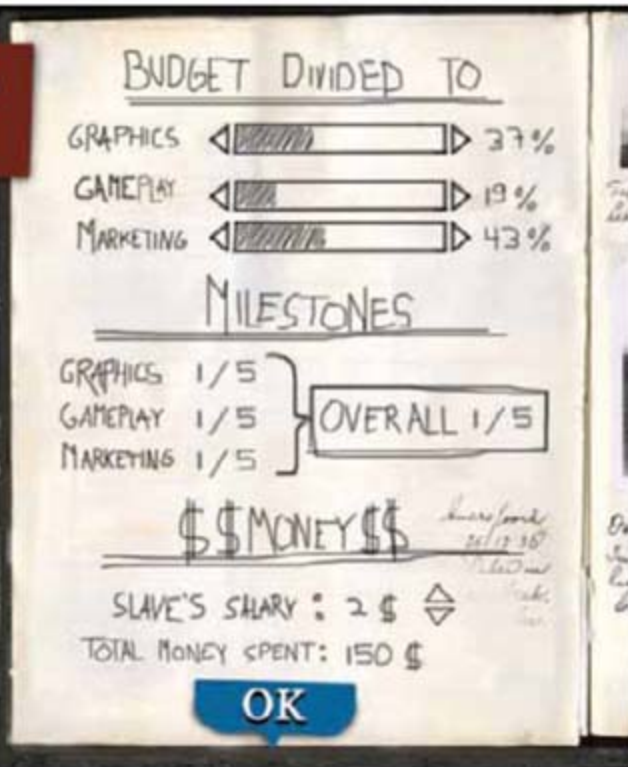 BUDGET DIVIDED TO
GRAPHICS 37%
GAMEPLAY 19%
MARKETING 43%
MILESTONES
GRAPHICS 1/5
GAMEPLAY 1/5
MARKETING 1/5
OVERALL 1/5
$$MONEY$$
SLAVE'S SALARY : 2 $
TOTAL MONEY SPENT: 150 $
OK